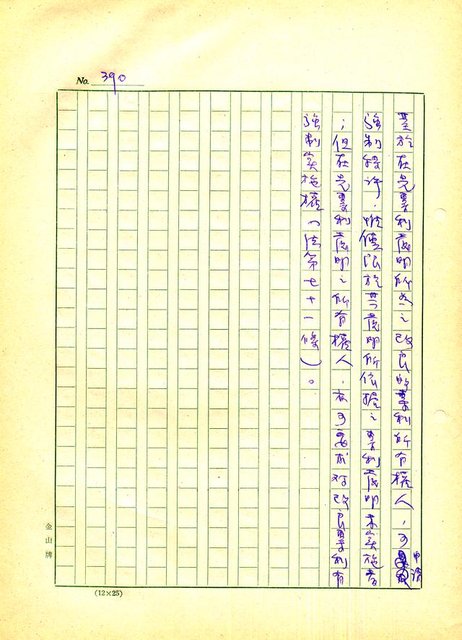 No. 390
基於在先專利發明所為之改良的專利所有權人，可申請
強制特許，惟僅限於其發明所依據之專利發明未实施者
；但在先專利發明之所有權人，亦可要求对改良專利有
強制实施權（法第七十一條）。
金山牌
(12×25)